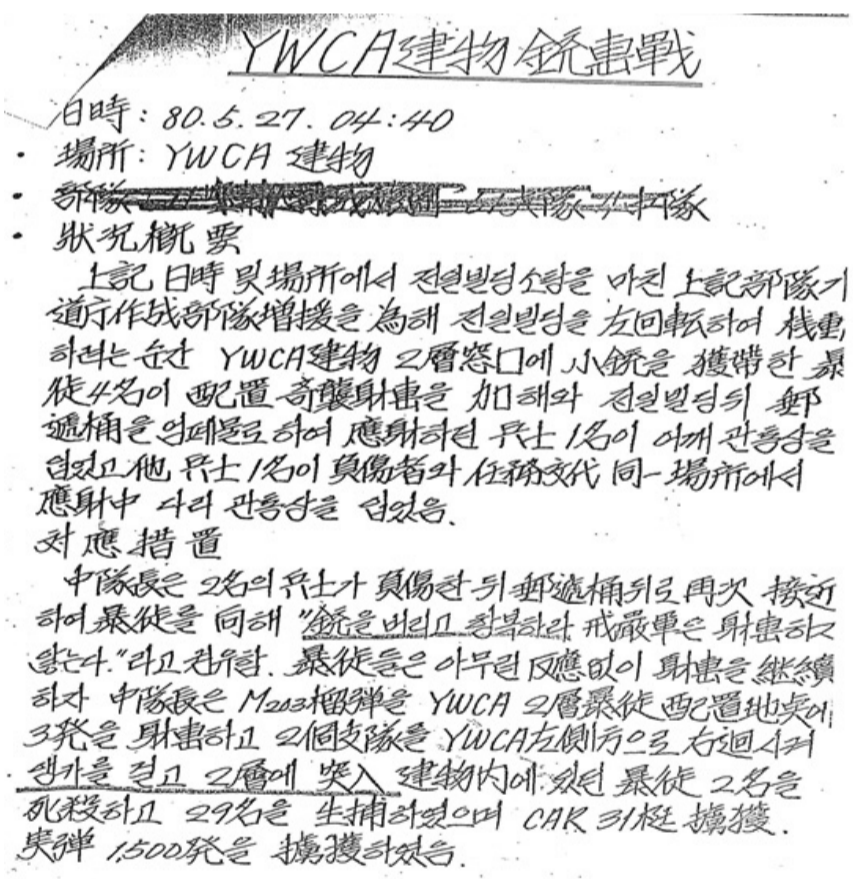 YWCA 建物 銃擊戰
日時 : 80. 5. 27. 04 : 40
· 場所 : YWCA 建物
· 部隊 隊
· 狀況槪要
上記 日時 및 場所에서 전일빌딩소탕을 마친 上記部隊가
道庁作战部隊增援을 為해 전일빌딩을 左回転하여 機動
하려는 순간 YWCA建物 2層窓口에 小銃을 獲帶한 暴
徒4名이 配置 奇襲射擊을 加해와 전일빌딩뒤 郵
遞桶을 엄폐물로 하여 應射하던 兵士 1名이 어깨 관통상을
입었고 他 兵士 1名이 負傷者와 任務交代 同一場所에서
應射中 다리 관통상을 입었음.
対應措置
中隊長은 2名의 兵士가 負傷한 뒤 郵遞桶뒤로 再次 接近
하여 暴徒를 向해 "銃을 버리고 항복하라 戒嚴軍은 射擊하지
않는다." 라고 권유함. 暴徒들은 아무런 反應없이 射擊을 繼續
하자 中隊長은 M203榴弾을 YWCA 2層暴徒 配置地点에
3発을 射擊하고 2個支隊를 YWCA左側方으로 右迴시켜
생가를 걸고 2層에 突入 建物内에 있던 暴徒 2名을
死殺하고 29名을 生捕하였으며 CAR 31梃 擄獲.
実弾 1,500発을 擄獲하였음.